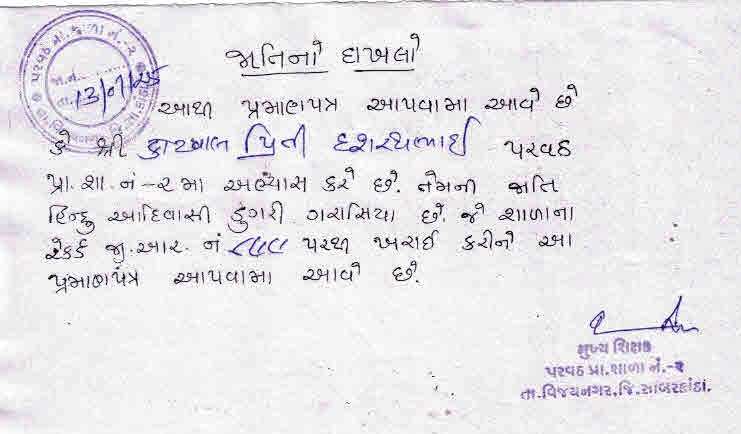 પરવઠ પ્રા.શાળા નં.-૨
જા.નં.
તા. 13/07/25
જાતિનો દાખલો
આથી પ્રમાણપત્ર આપવામા આવે છે
કે શ્રી પ્રિતી દશરથભાઈ પરવઠ
પ્રા.શા.નં-૨ મા અભ્યાસ કરે છે. તેમની જાતિ
હિન્દુ આદિવાસી ડુંગરી ગરાસિયા છે. જે શાળાના
રેકર્ડ જી.આર. નં પરથી ખરાઈ કરીને આ
પ્રમાણપત્ર આપવામા આવે છે.
મુખ્ય શિક્ષક
પરવઠ પ્રા.શાળા નં.-૨
તા.વિજયનગર,જિ.સાબરકાંઠા.